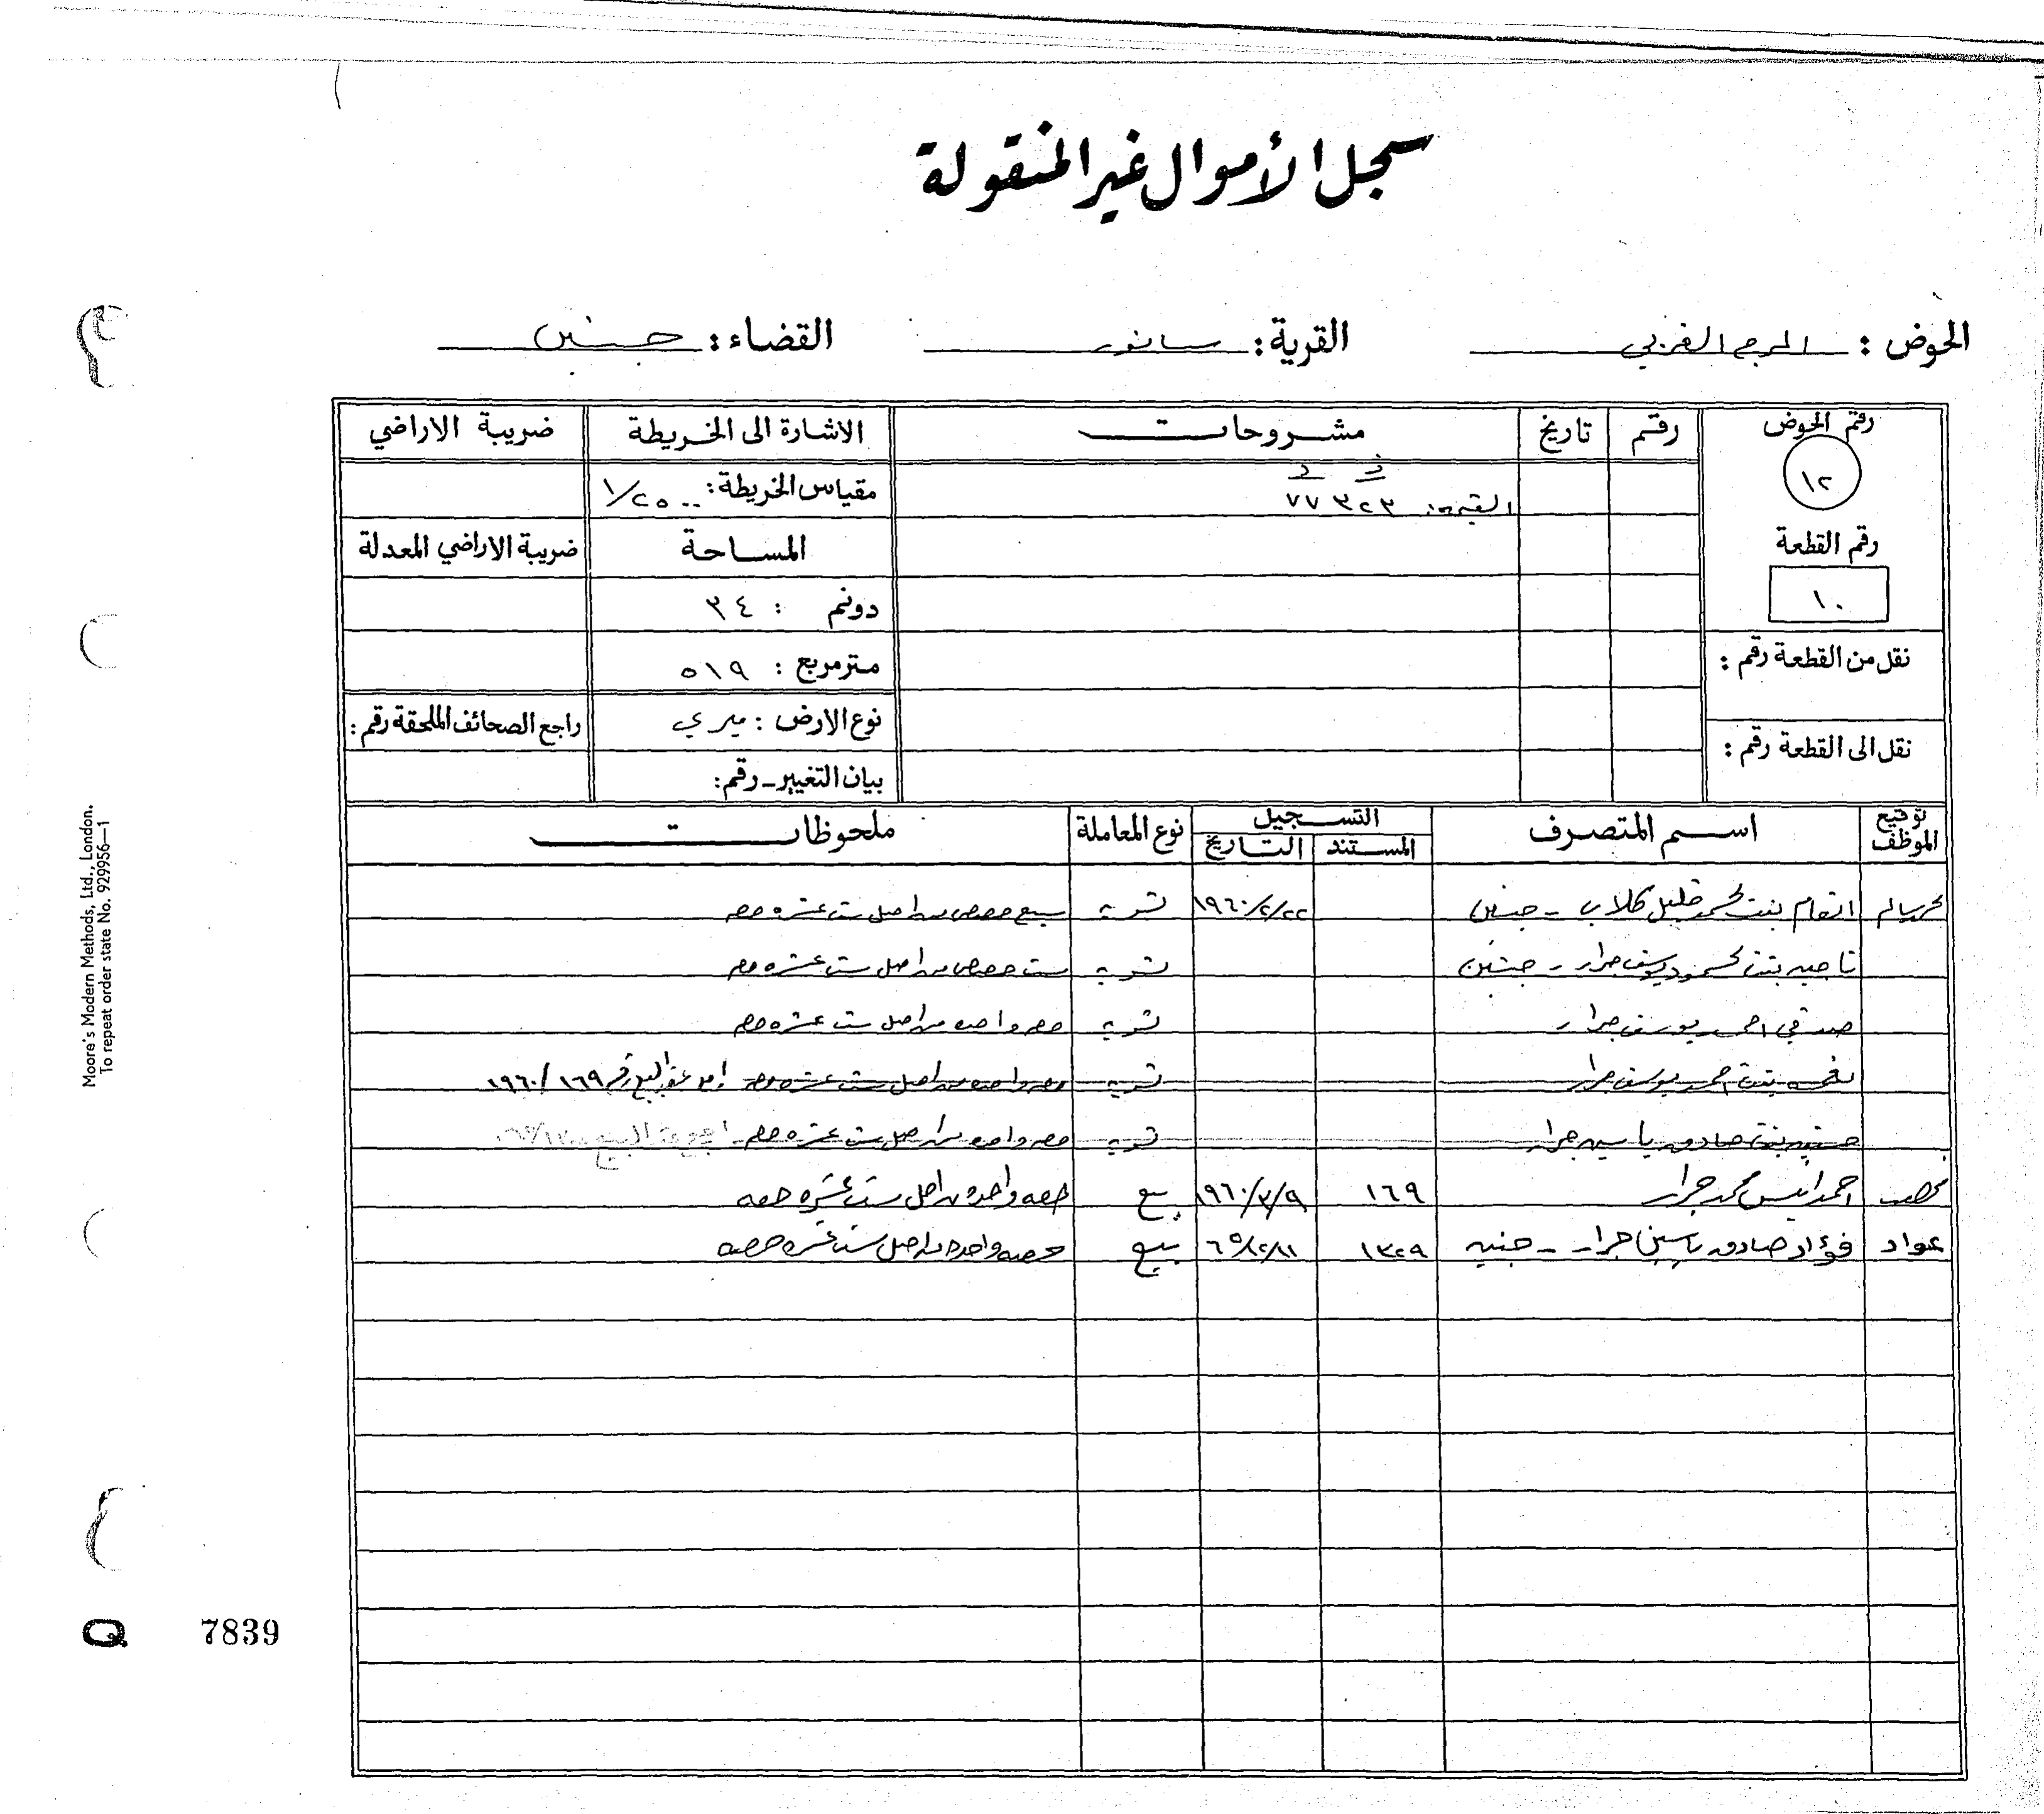 سجل الأموال غير المنقولة
الحوض : المرج الغربي القرية: سانور القضاء: جنين
رقم الحوض رقم تاريخ مشروحات الاشارة الى الخريطة ضريبة الاراضي
١٢
ف د
القيمة: ٣٢٣ ٧٧ مقياس الخريطة: ١/٢٥٠٠
رقم القطعة المساحة ضريبة الاراضي المعدلة
١٠ دونم : ٣٤
نقل من القطعة رقم : مترمربع : ٥١٩
نوع الارض : ميري راجع الصحائف الملحقة رقم :
نقل الى القطعة رقم :
بيان التغيير - رقم:
توقيع الموظف اسم المتصرف التسجيل نوع المعاملة ملحوظات
المستند التاريخ
انعام بنت محمد خليل كلاب - جنين ١٩٦٠/٢/٢٢ تسوية سبع حصص من اصل ست عشره حصه
ناجيه بنت محمود يوسف جرار - جنين تسوية ست حصص من اصل ست عشره حصه
صدقي احمد يوسف جرار تسوية حصه واحده من اصل ست عشره حصه
بنت احمد يوسف جرار تسوية حصه واحده من اصل ست عشره حصه عقد البيع رقم ١٦٩/١٩٦٠
بنت صادق ياسين جرار تسوية حصه واحده من اصل ست عشره حصه
احمد انيس محمد جرار ١٦٩ ١٩٦٠/٣/٩ بيع حصه واحده من اصل ست عشره حصه
عواد فؤاد صادق ياسين جرار - جنين ١٣٢٩ ٦٥/١٢/١١ بيع حصه واحده من اصل ست عشره حصه
Moore's Modern Methods, Ltd., London.
To repeat order state No. 929956—1
Q 7839